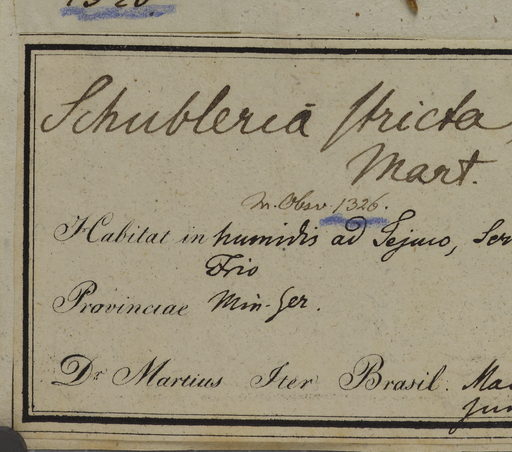 Schubleria stricta
Mart.
in. Obsv. 1326.
Habitat in humidis ad Tejuco, Ser
Frio
Provinciae Min-Ger.
Dr. Martius Iter Brasil.